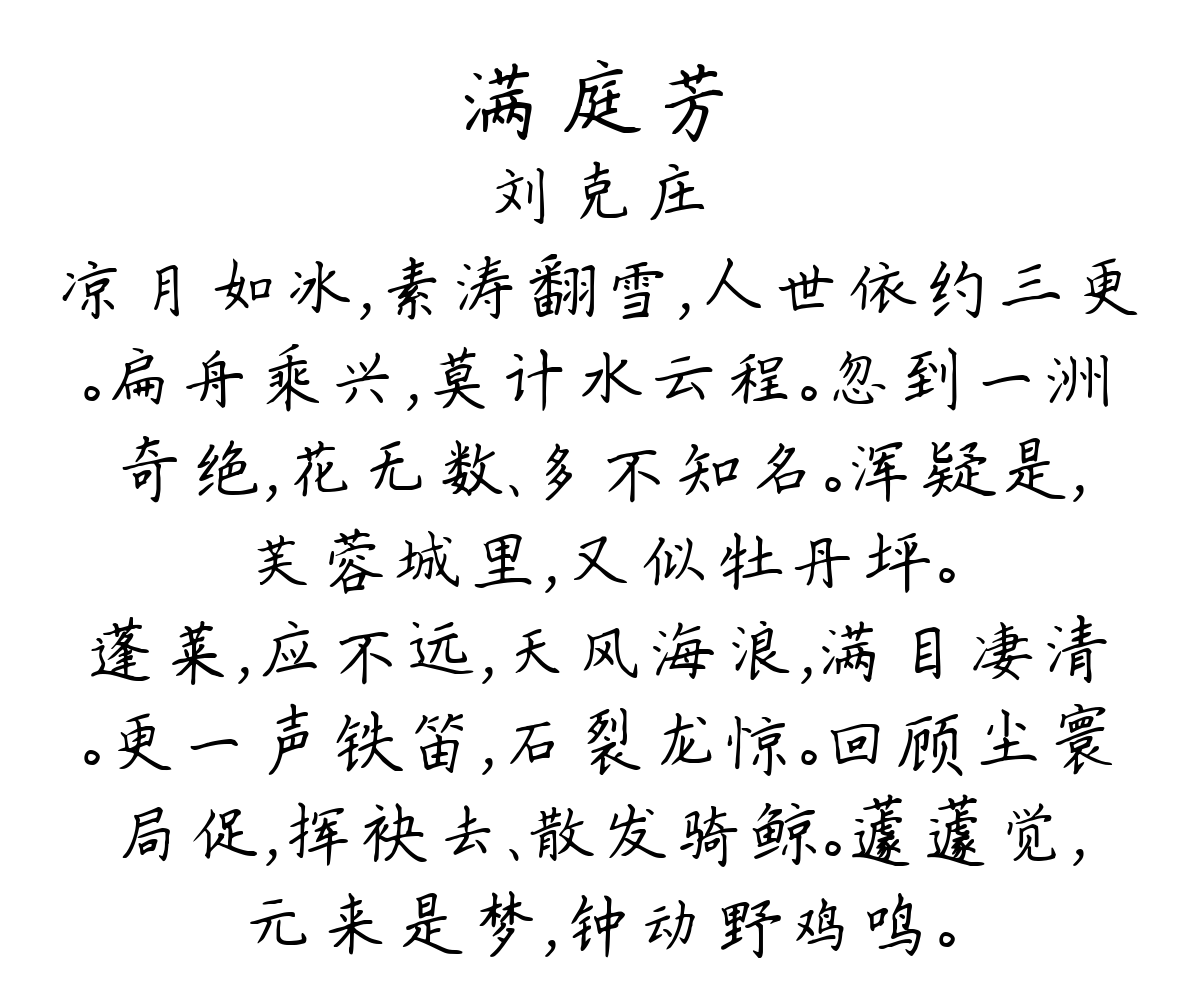 满庭芳
刘克庄
凉月如冰,素涛翻雪,人世依约三更
。扁舟乘兴,莫计水云程。忽到一洲
奇绝,花无数、多不知名。浑疑是,
芙蓉城里,又似牡丹坪。
蓬莱,应不远,天风海浪,满目凄清
。更一声铁笛,石裂龙惊。回顾尘寰
局促,挥袂去、散发骑鲸。蘧蘧觉,
元来是梦,钟动野鸡鸣。